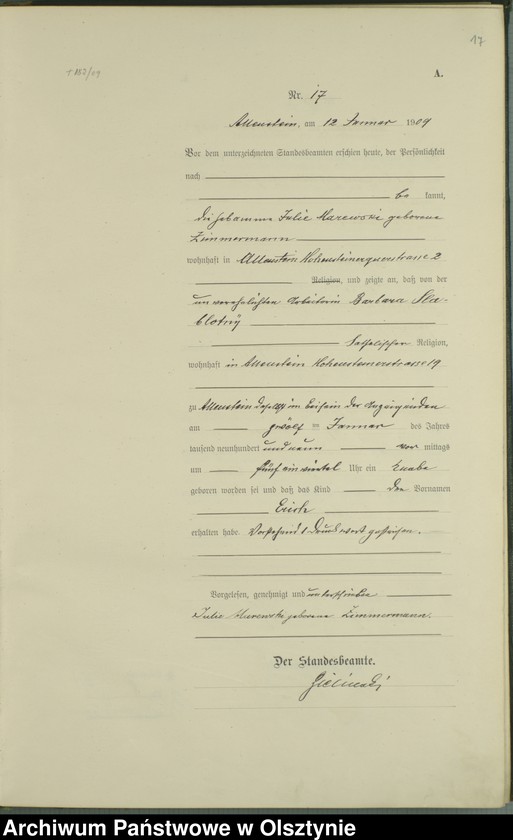 17
+ 152/09
A.
Nr. 17
Allenstein, am 12 Januar 1909
Vor dem unterzeichneten Standesbeamten erschien heute, der Persönlichkeit
nach
be kannt,
die Hebamme Julie Marewski geborene
Zimmermann
wohnhaft in Allenstein Hohensteinerquerstrasse 2
Religion, und zeigte an, daß von der
unverehelichten Arbeiterin Barbara
katholischer Religion,
wohnhaft in Allenstein Hohensteinerstrasse 19
zu Allenstein daselbst im Beisein der Anzeigenden
am zwölf ten Januar des Jahres
tausend neunhundert und neun vor mittags
um fünf ein viertel Uhr ein Knabe
geboren worden sei und daß das Kind den Vornamen
Erich
erhalten habe. Vorstehend 1 Druckwort gestrichen.
Vorgelesen, genehmigt und unterschrieben
Julie Marewski geborene Zimmermann.
Der Standesbeamte.
Archiwum Państwowe w Olsztynie